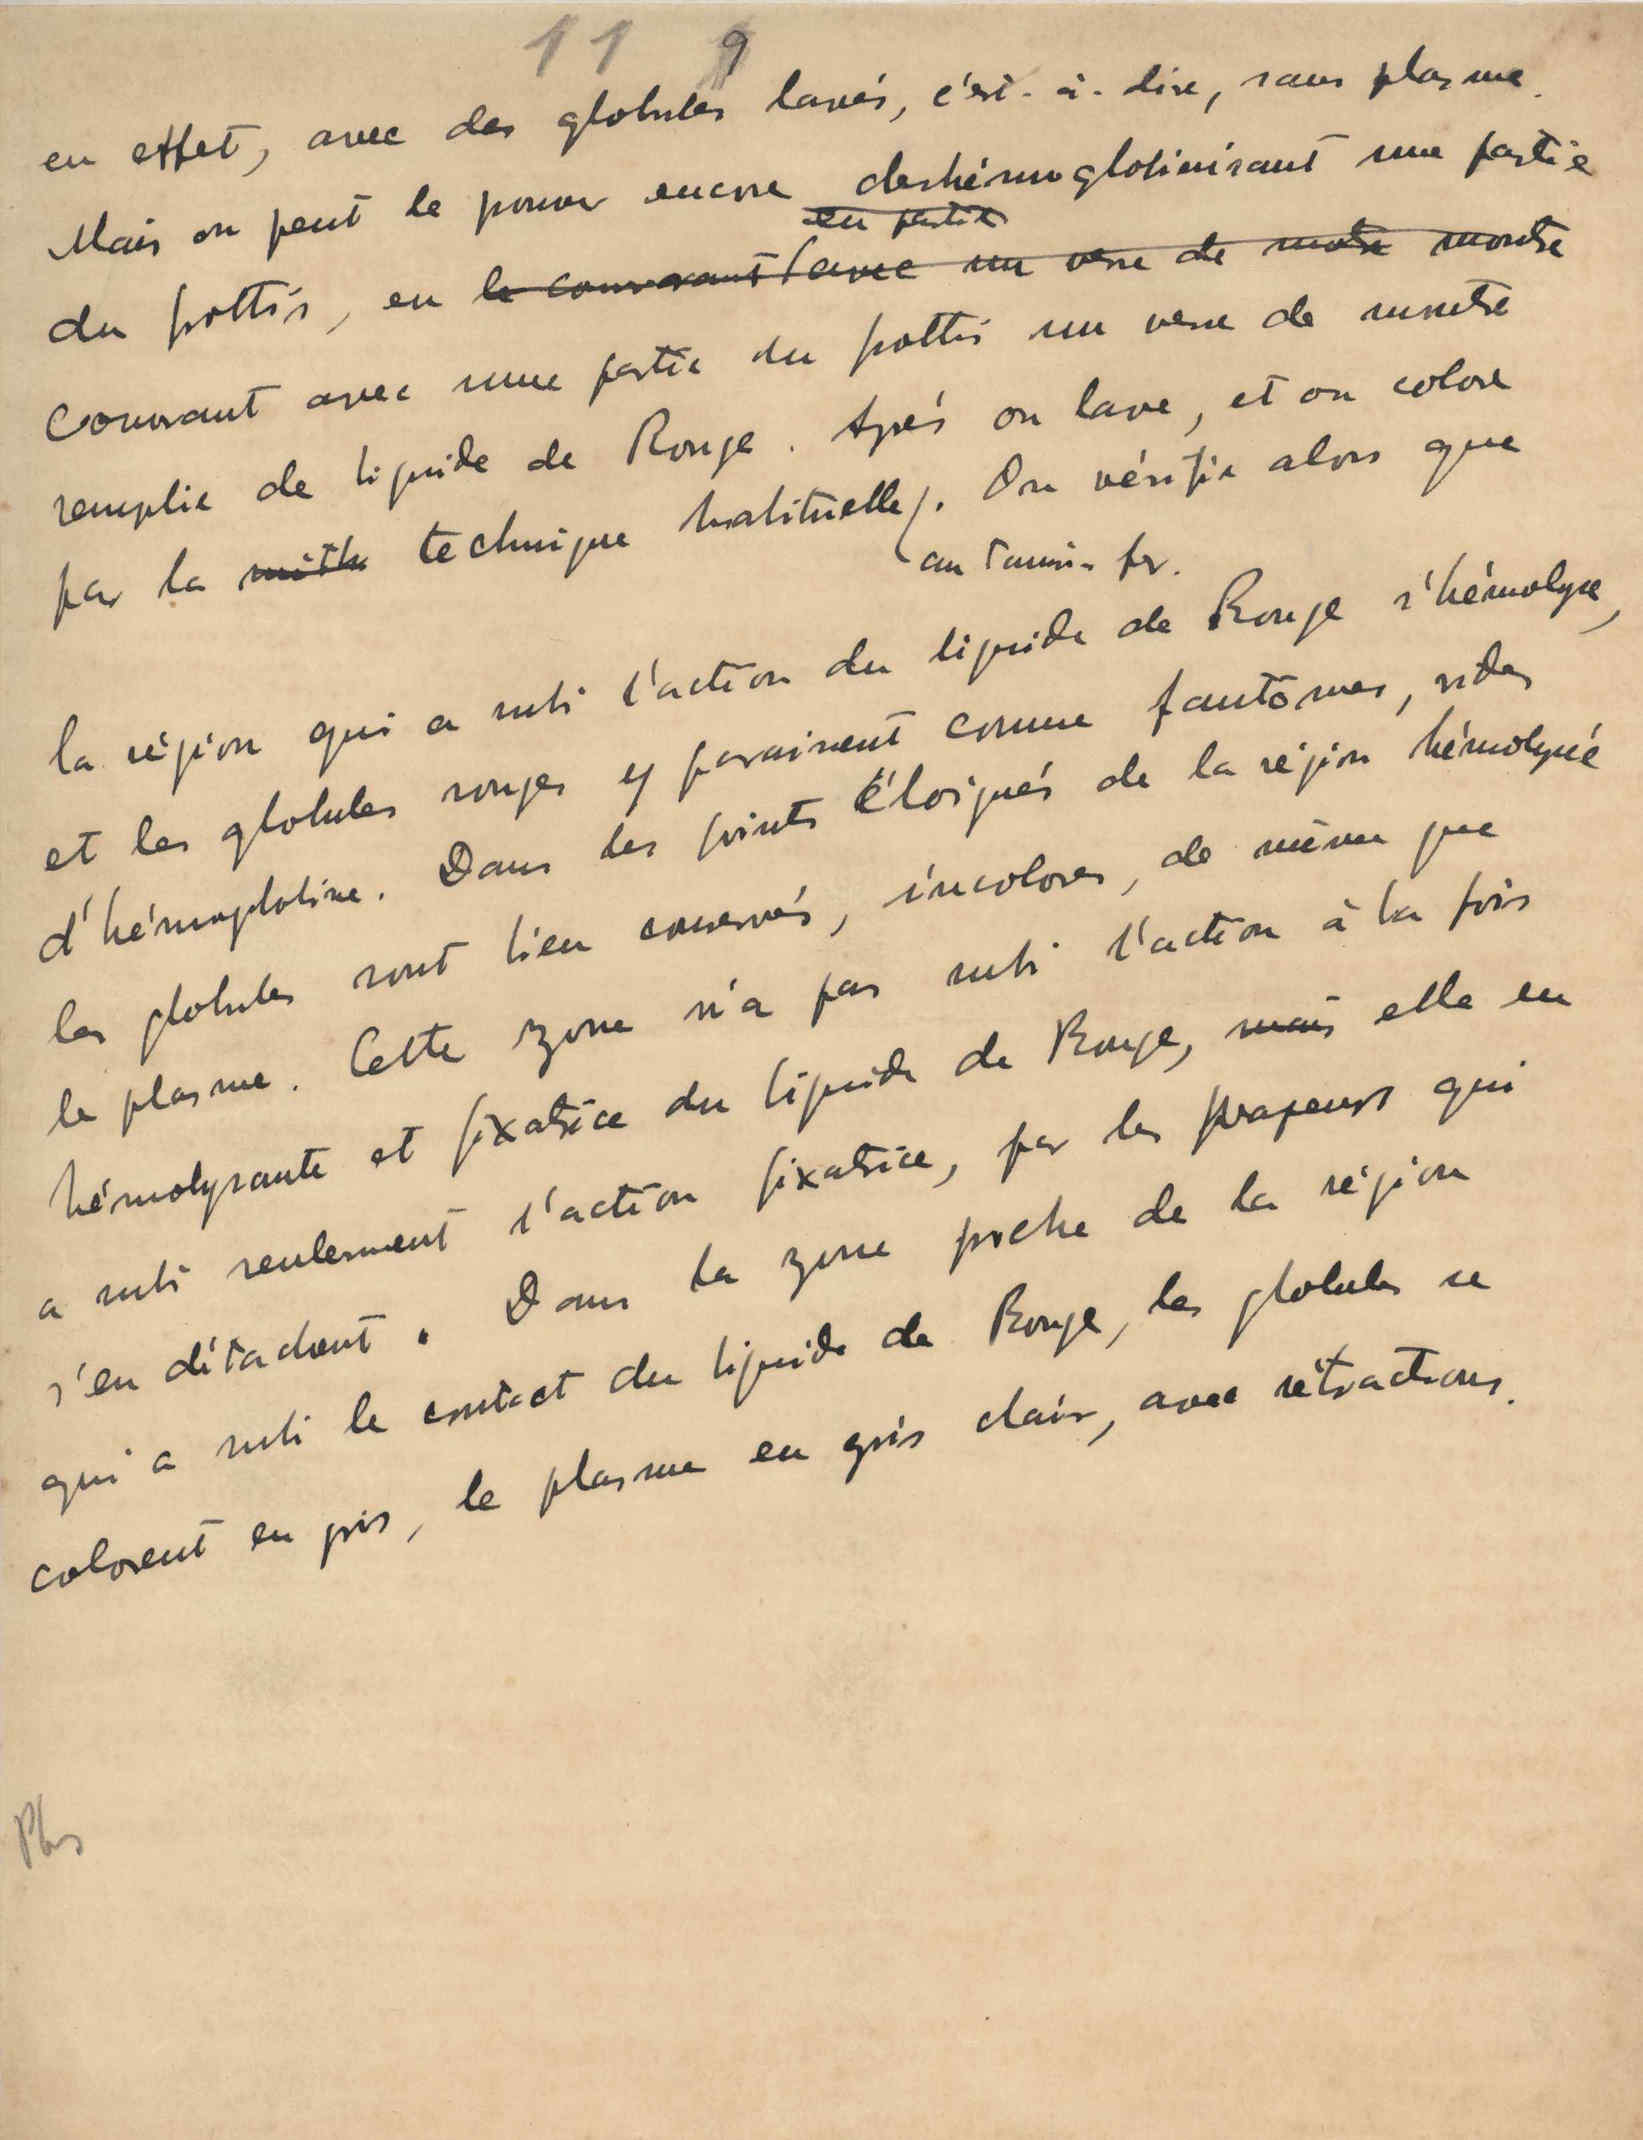 11 9
en effet, avec des globules lavés, c'est-à-dire, sans plasme.
Mais on peut le prouver encore deshémoglobinisant une partie
en partie
du frottis, en le couvrant avec un verre de motre montre
Couvrant avec une partie du frottis un verre de montre
remplie de liquide de Rouge. Après on lave, et on colore
par la méth technique habituelle. On vérifie alors que
au tannin-fer.
la région qui a subi l'action du liquide de Rouge s'hémolyse,
et les globules rouges y paraissent comme fantômes, vides
d'hémoglobine. Dans les points éloignés de la région hémolysée
les globules sont bien conservés, incolores, de même que
le plasme. Cette zone n'a pas subi l'action à la fois
hémolysante et fixatrice du liquide de Rouge, mais elle en
a subi seulement l'action fixatrice, par les vapeurs qui
s'en détachent. Dans la zone proche de la région
qui a subi le contact du liquide de Rouge, les globules se
colorent en gris, le plasme en gris clair, avec rétractions.